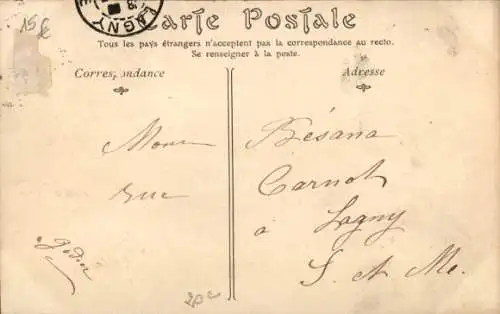 15€
LAGNY
Carte Postale
Tous les pays étrangers n'acceptent pas la correspondance au recto.
Se renseigner à la poste.
Correspondance
Adresse
Bésana
rue Carnot
à Lagny
S. et M.